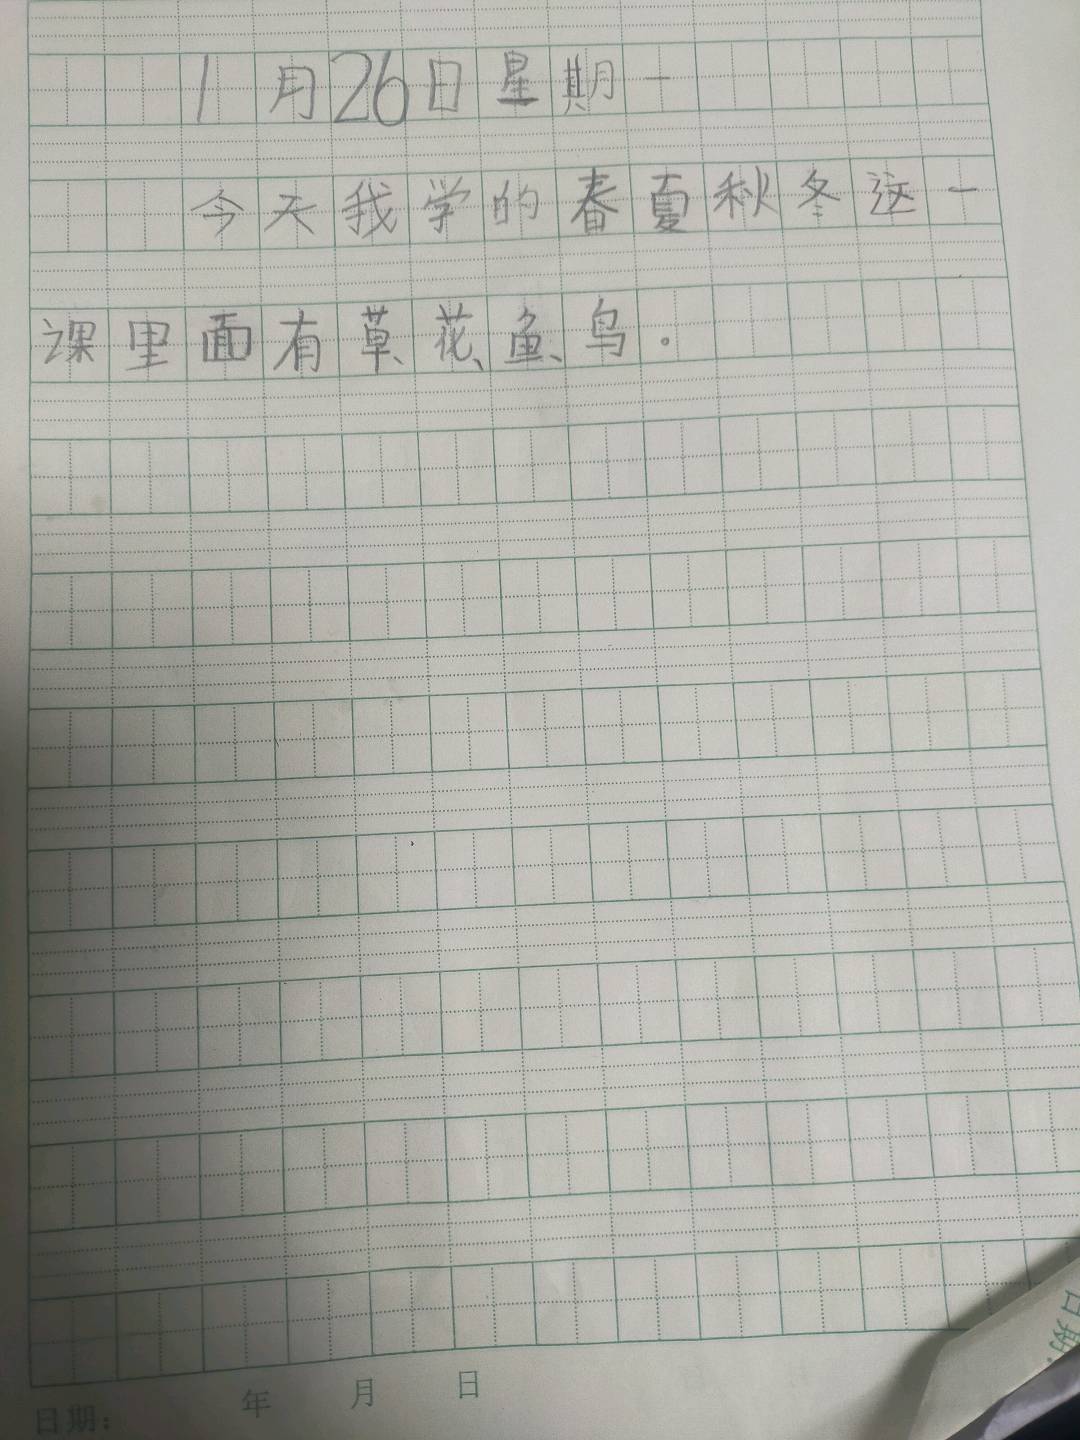 1月26日星期一
今天我学的春夏秋冬这一
课里面有草、花、鱼、鸟。
年 月 日
日期：
日期：